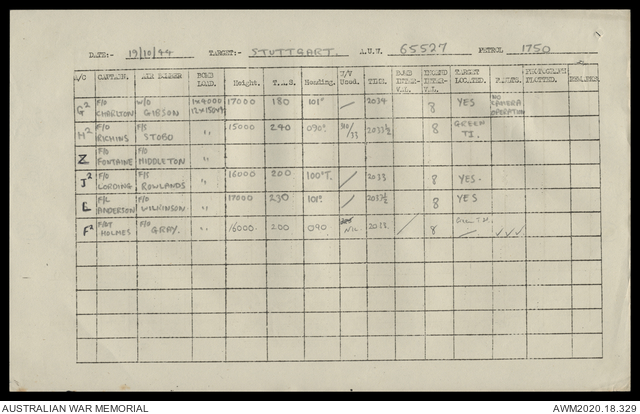 DATE:- 19/10/44 TARGET:- STUTTGART. A.U.W. 65527 PETROL 1750
A/C CAPTAIN. AIR BOMBER BOMB LOAD. Height. T.A.S. Heading. W/V Used. TIME BOMB INTERVAL. TARGET LOCATED. PHOTOGRAPH PLOTTED.
G² F/O CHARLTON W/O GIBSON 1x4000 17000 180 101° / 2034 8 YES NO CAMERA OPERATION
H² F/O RICHINS F/S STOBO " 15000 240 090° 310/33 2033½ 8 GREEN T.I.
Z F/O FONTAINE F/O MIDDLETON "
J² F/O LORDING F/S ROWLANDS " 16000 200 100°T. / 2033 8 YES.
E F/L ANDERSON F/O WILKINSON " 17000 230 101° / 2037½ 8 YES
F² HOLMES F/O GREY. " 16000. 200 090 NIL / 8 ✓✓✓
AUSTRALIAN WAR MEMORIAL AWM2020.18.329